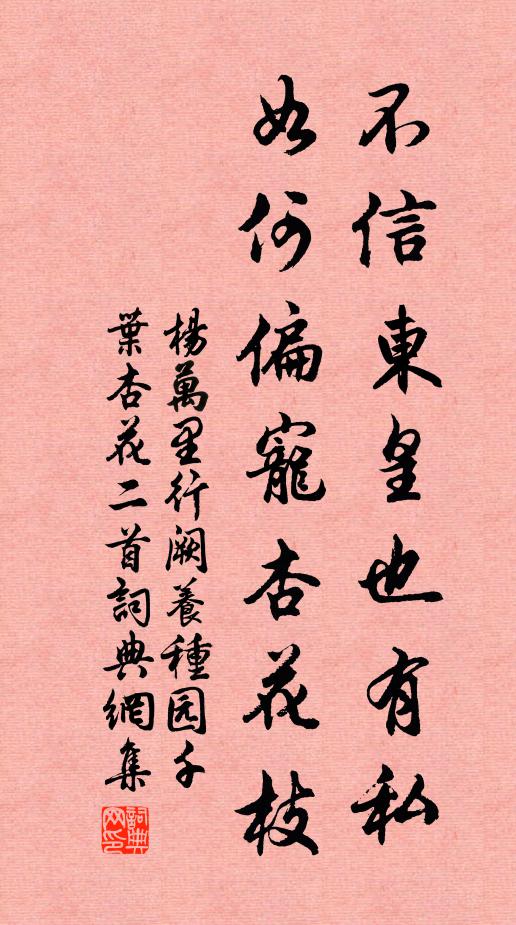 不信東皇也有私
如何偏寵杏花枝
楊萬里行闕養種园千
葉杏花二首詞典網集
詞典网印